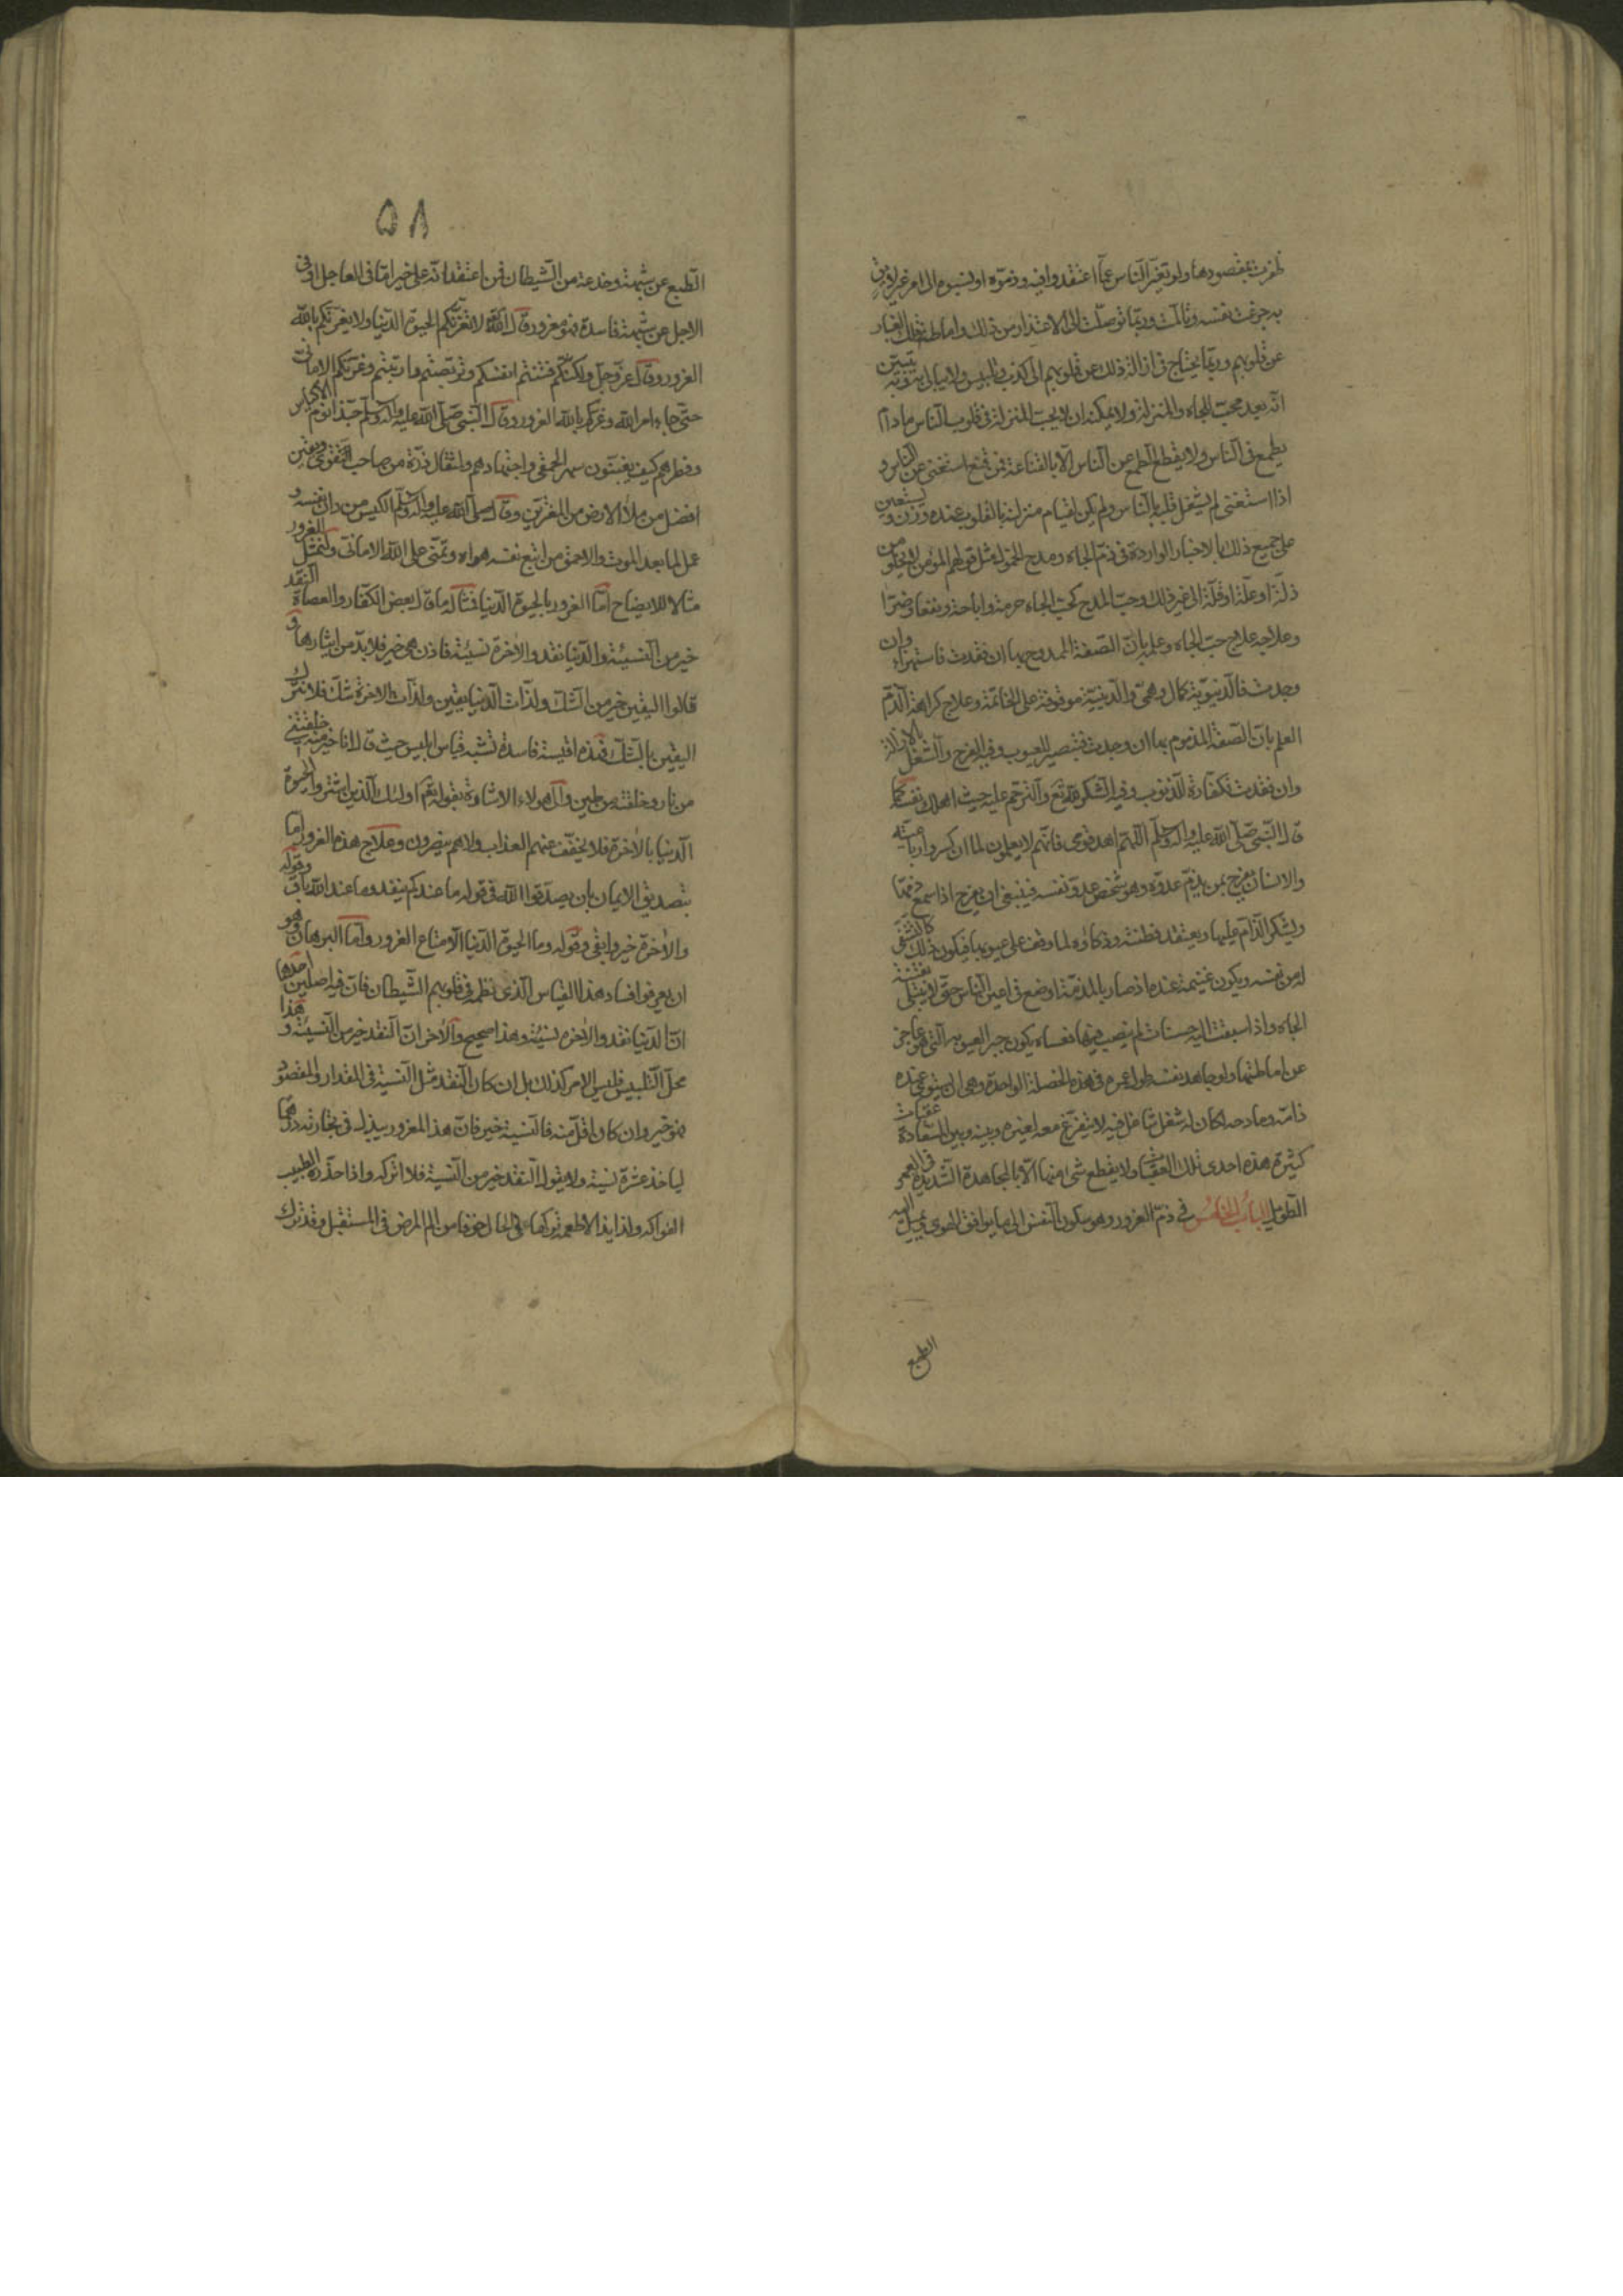 ظفرت بمقصودها ولو تغير الناس عما اعتقدوا فيه وذموه او نسبوه الى امر غير لايق
به جزعت نفسه وتالمت وربما توصلت الى الاعتذار من ذلك واماطة ذلك الغبار
عن قلوبهم وربما يحتاج فى ازالة ذلك عن قلوبهم الى كذب وتلبيس ولا يبالى به وبه يتبين
انه بعد محب للجاه والمنزلة ولا يمكنه ان لا يحب المنزلة فى قلوب الناس مادام
يطمع فى الناس ولا يقطع الطمع عن الناس الا بالقناعة فمن قنع استغنى عن الناس و
اذا استغنى لم يشتغل قلبه بالناس ولم يكن لقيام منزلته بالقلوب عنده وزن ويستعين
على جميع ذلك بالاخبار الواردة فى ذم الجاه ومدح الخمول مثل قولهم المؤمن لا يخلو من
ذلة او علة او قلة الى غير ذلك وحب المدح كحب الجاه حرمة واباحة ونفعا وضرا
وعلاجه علاج حب الجاه وعلمه بان الصفة الممدوح بها ان فقدت فاستهزاء وان
وجدت فالدنيوية كمال وهمى والدينية موقوفة على الخاتمة وعلاج كراهة الذم
العلم بان الصفة المذموم بها ان وجدت فتبصير للعيوب وفيه الفرح والشغل بالازالة
وان فقدت فكفارة للذنوب وفيه الشكر لله تع والترحم عليه حيث اهلك نفسه كما
قال النبى صلى الله عليه واله وسلم اللهم اهد قومى فانهم لا يعلمون لما ان كسروا رباعيته
والانسان يفرح بمن يذم عدوه وهو شخص عدو نفسه فينبغى ان يفرح اذا سمع ذمها
وليشكر الذام عليها ويعتقد فطنته وذكاؤه لما وقف على عيوبها فيكون ذلك كالتشفى
له من نفسه ويكون غنيمة عنده اذ صار بالمذمة اوضع فى اعين الناس حتى لا يبتلى بفتنة
الجاه واذا سبقت اليه حسنات لم ينصب فيها فعساه يكون جبر العيوبه التى هو عاجز
عن اماطتها ولو جاهد نفسه طول عمره فى هذه الخصلة الواحدة وهى ان يستوى عنده
ذامه ومادحه لكان له شغل شاغل فيه لا يتفرغ معه لغيره وبينه وبين السعادة عقبات
كثيرة هذه احدى تلك العقبات ولا يقطع شى منها الا بالمجاهدة الشديدة فى العمر
الطويل الباب الخامس فى ذم الغرور وهو سكون النفس الى ما يوافق الهوى ويميل اليه
الطبع
٥٨
الطبع عن شبهة وخدعة من الشيطان فمن اعتقد انه على خير اما فى العاجل او فى
الاجل عن شبهة فاسدة فهو مغرور قال الله لا تغرنكم الحيوة الدنيا ولا يغرنكم بالله
الغرور وقال عز وجل ولكنكم فتنتم انفسكم وتربصتم وارتبتم وغرتكم الامانى
حتى جاء امر الله وغركم بالله الغرور وقال النبى صلى الله عليه واله وسلم حبذا نوم الاكياس
وفطرهم كيف يغبنون سهر الحمقى واجتهادهم ولمثقال ذرة من صاحب التقوى ويقين
افضل من ملأ الارض من المغترين وقال صلى الله عليه واله وسلم الكيس من دان نفسه و
عمل لما بعد الموت والاحمق من اتبع نفسه هواه وتمنى على الله الامانى ولنمثل الغرور
مثالا للايضاح اما الغرور بالحيوة الدنيا فمثاله ما قال بعض الكفار والعصاة النقد
خير من النسيئة والدنيا نقد والاخرة نسيئة فاذن هى خير فلا بد من ايثارها و
قالوا اليقين خير من الشك ولذات الدنيا يقين ولذات الاخرة شك فلا نترك
اليقين بالشك فهذه اقيسة فاسدة تشبه قياس ابليس حيث قال انا خير منه خلقتنى
من نار وخلقته من طين وال هولاء الاشارة بقوله تع اولئك الذين اشتروا الحيوة
الدنيا بالاخرة فلا يخفف عنهم العذاب ولا هم ينصرون وعلاج هذه الغرور اما
بتصديق الايمان بان يصدقوا الله فى قوله ما عندكم ينفد وما عند الله باق وقوله
والاخرة خير وابقى وقوله وما الحيوة الدنيا الا متاع الغرور واما البرهان وهو
ان يعرفوا فساد هذا القياس الذى نظم فى قلوبهم الشيطان فان فيه اصلين احدها
ان الدنيا نقد والاخرة نسيئة وهذا صحيح والاخر ان النقد خير من النسيئة و هذا
محل التلبيس فليس الامر كذلك بل ان كان النقد مثل النسية فى المقدار والمقصود
فهو خير وان كان اقل منه فالنسية خير فان هذا المغرور يبذل فى تجارته درهما
لياخذ عشرة نسية ولا يقول النقد خير من النسية فلا اتركه واذا حذره الطبيب
الفواكه ولذايذ الاطعمة تركها فى الحال خوفا من الم المرض فى المستقبل وقد ترك